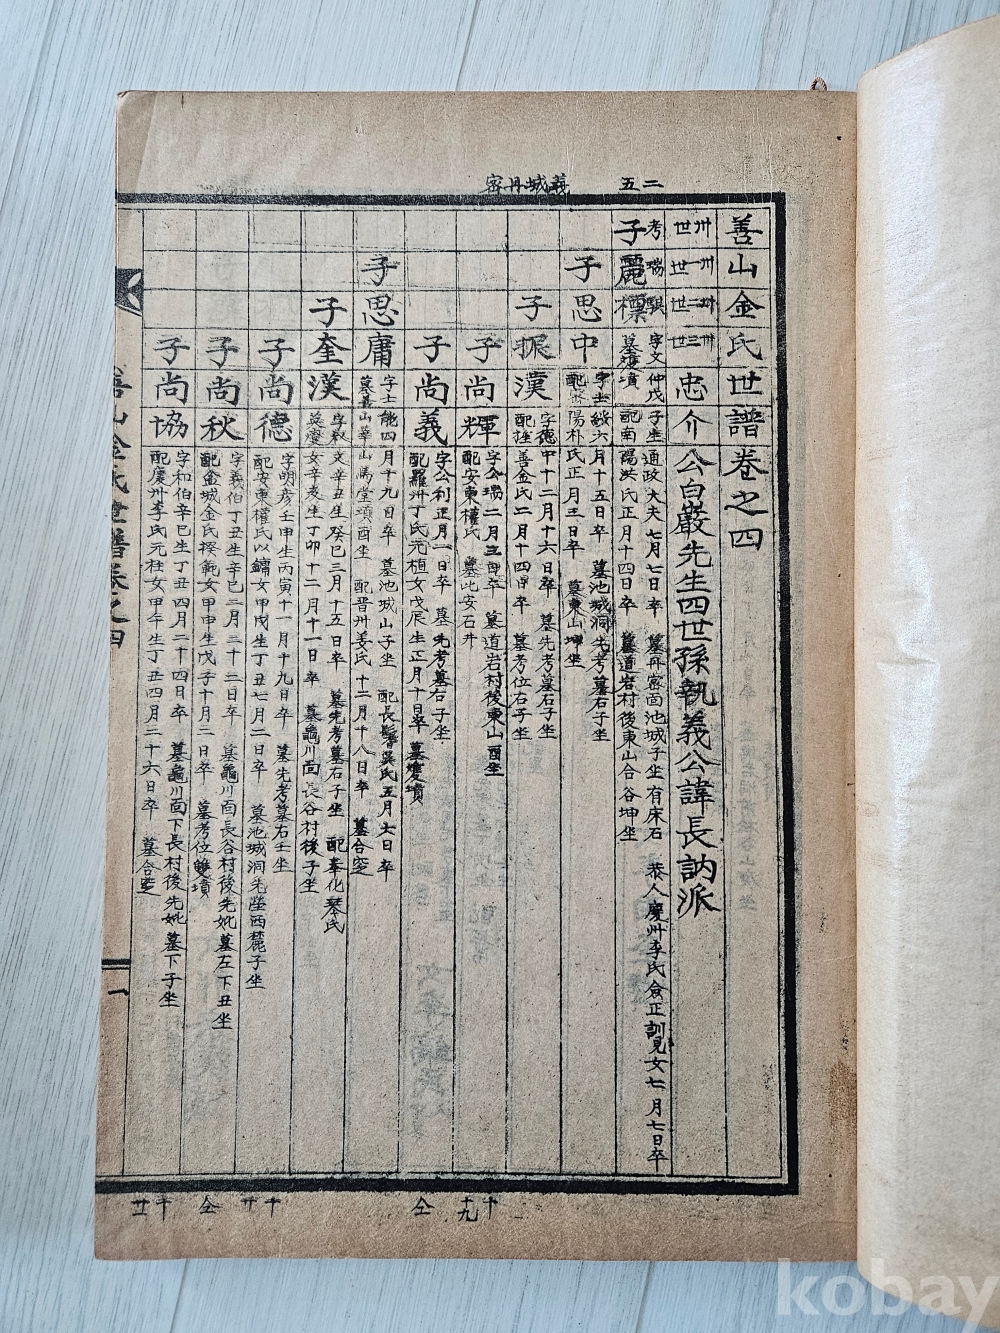 二五
義城丹密
善山金氏世譜卷之四
卅世
卅一世
卅二世
卅三世
忠介公白巖先生四世孫執義公諱長訥派
考瑞騏
子麗樑
字文仲戊子生通政大夫七月七日卒 墓丹密面池城子坐有床石 恭人慶州李氏僉正訓見女七月七日卒
墓雙墳 配南陽洪氏正月十四日卒 墓道岩村後東山合谷坤坐
子思中
六月十五日卒 墓池城洞先考墓右子坐
陽朴氏正月三日卒 墓東山坤坐
子振漢
字德中十二月十六日卒 墓先考墓右子坐
善金氏二月十四日卒 墓考位右子坐
子尚輝
字公瑞二月三日卒 墓道岩村後東山酉坐
配安東權氏 墓比安石井
子尚義
字公利正月一日卒 墓先考墓右子坐
配羅州丁氏元植女戊辰生正月十日卒 墓雙墳
子思庸
字士能四月十九日卒 墓池城山子坐 配長髻吳氏五月六日卒
墓義山華山馬堂項酉坐 配晋州姜氏十二月十八日卒 墓合窆
子奎漢
文辛丑生癸巳三月十五日卒 墓先考墓右子坐 配奉化琴氏
女辛亥生丁卯十二月十一日卒 墓龜川面長谷村後子坐
子尚德
字明彦壬申生丙寅十一月十九日卒 墓先考墓右壬坐
配安東權氏以鏞女甲戌生丁丑七月二日卒 墓池城洞先塋西麓子坐
子尚秋
字義伯丁丑生辛巳二月三十二日卒 墓龜川面長谷村後先妣墓左下丑坐
配金城金氏揆範女甲申生戊子十月三日卒 墓考位雙墳
子尚協
字和伯辛巳生丁丑四月二十四日卒 墓龜川面下長村後先妣墓下子坐
配慶州李氏元柱女甲午生丁丑四月二十六日卒 墓合窆
善山金氏世譜卷之四
一
十九
仝
十廿
仝
十廿
kobay